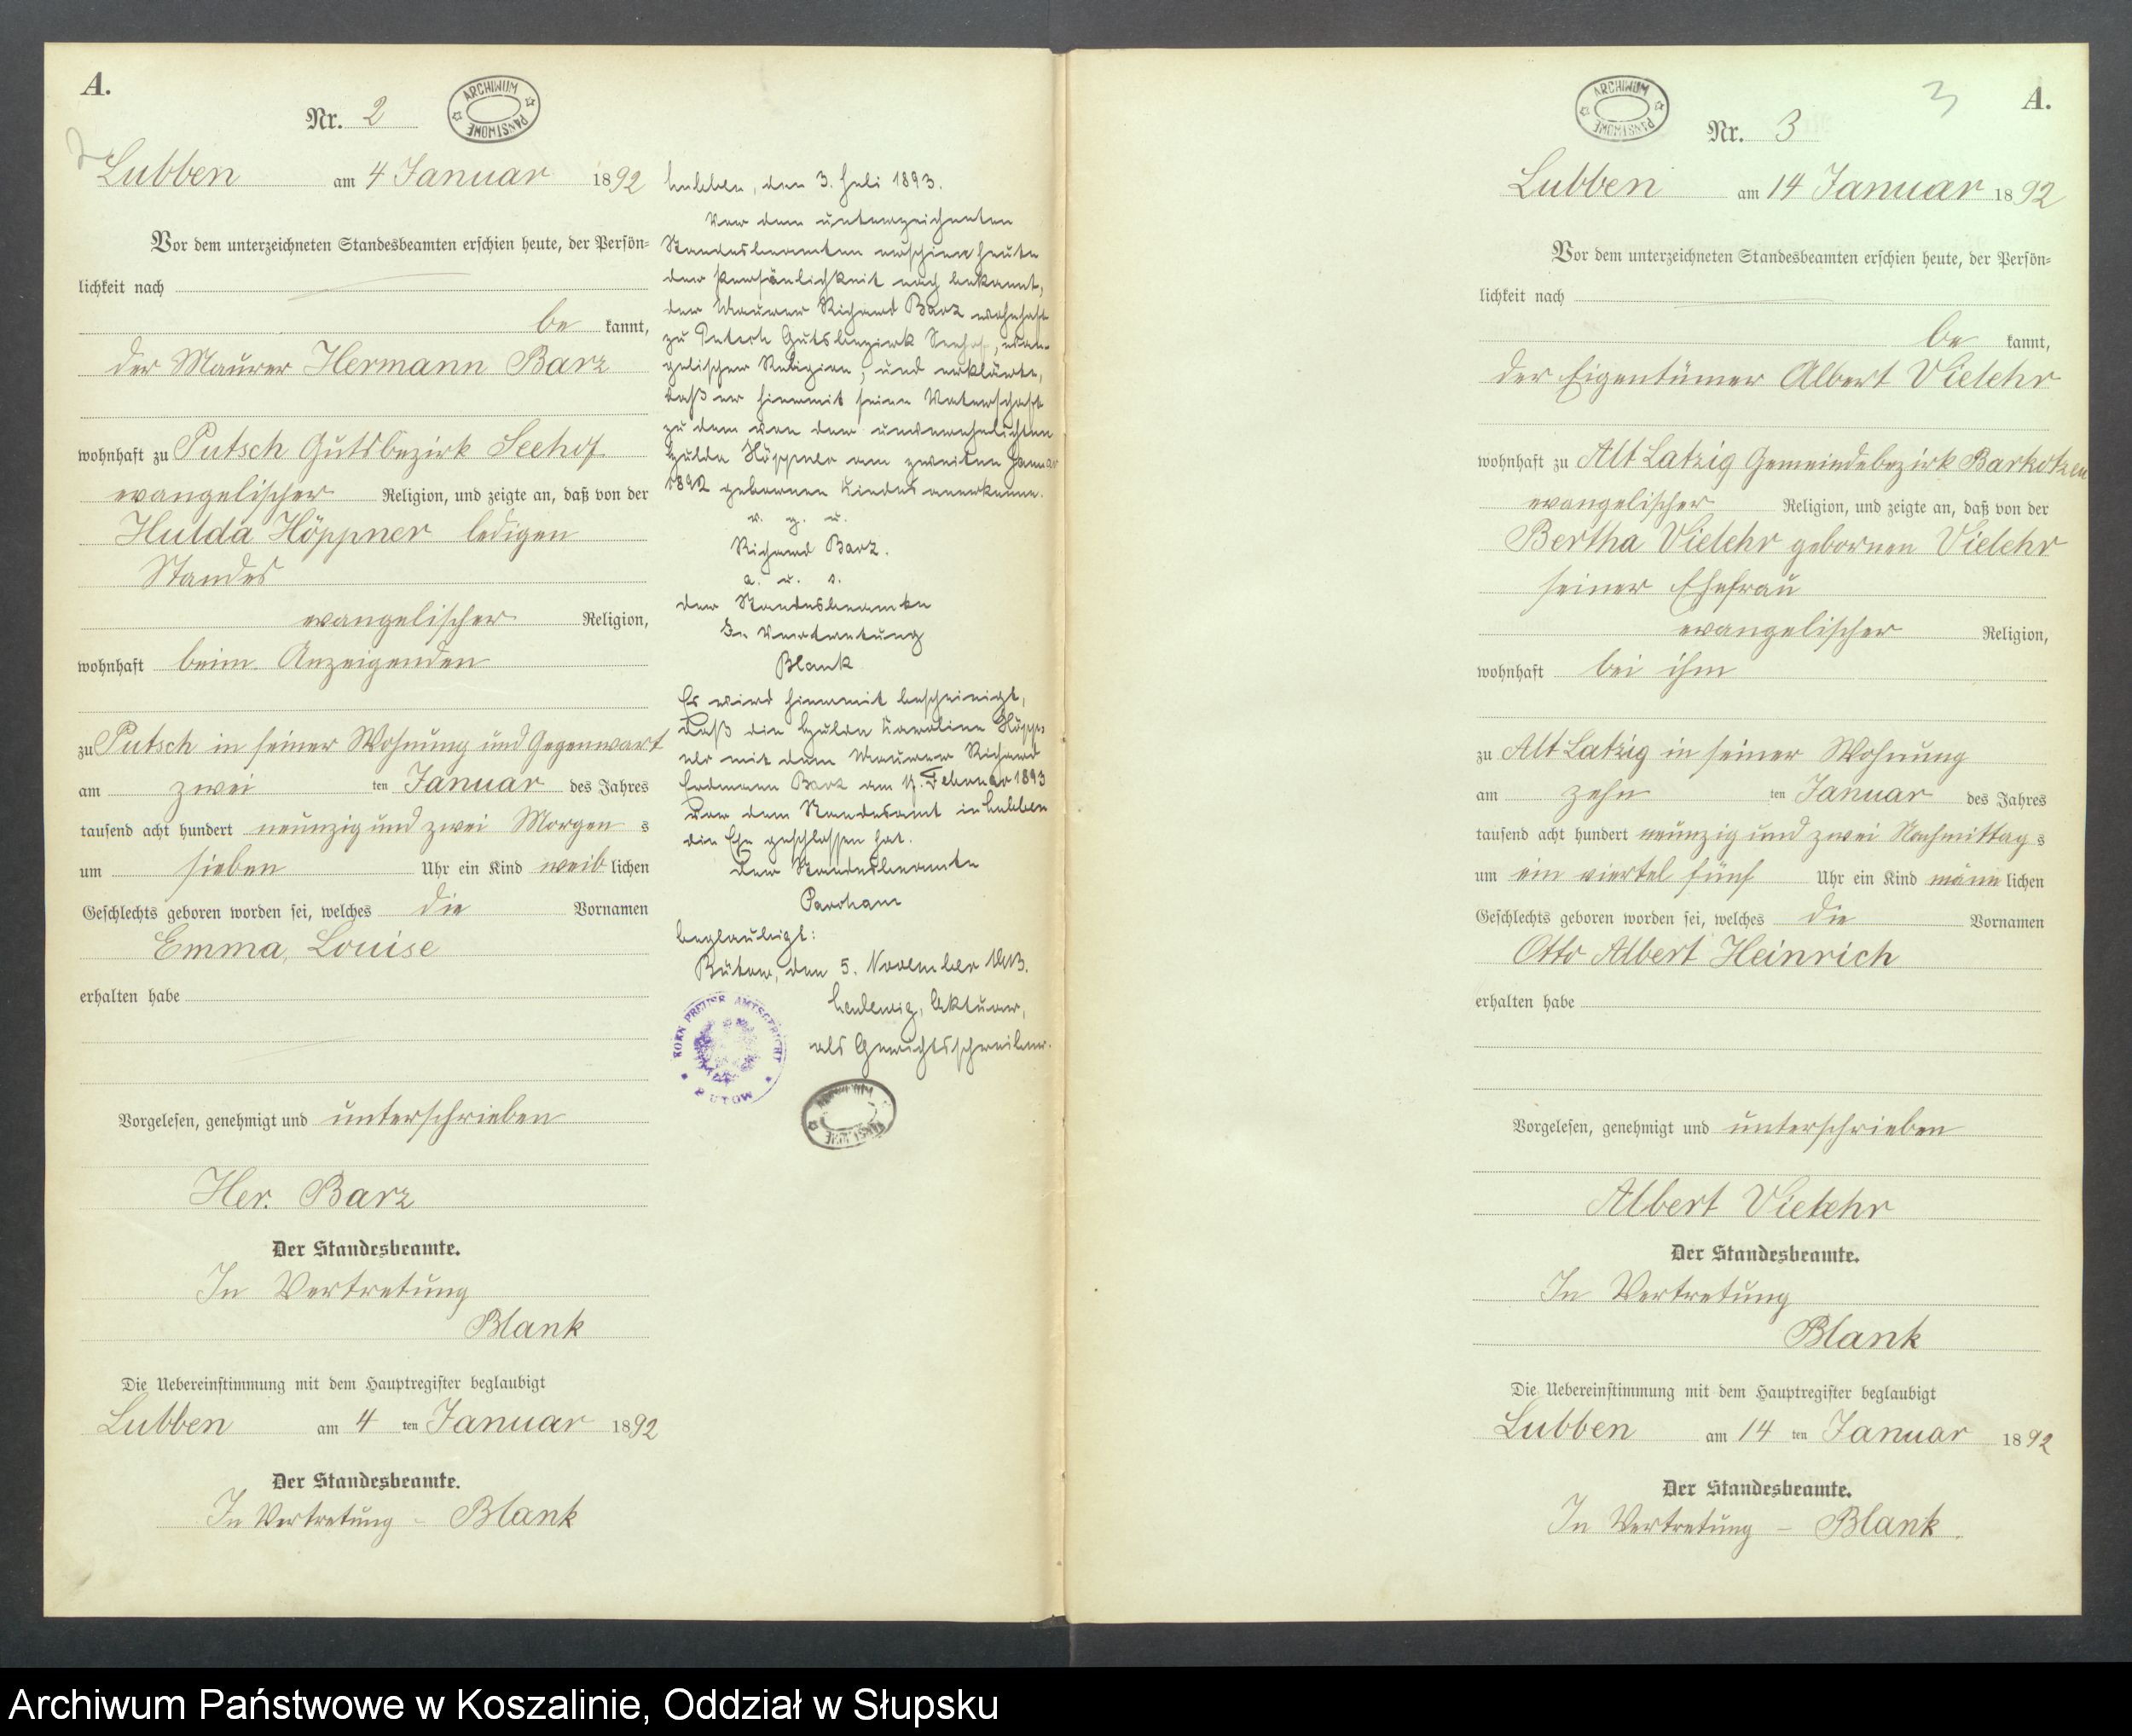 A.
Nr. 2
ARCHIWUM PAŃSTWOWE
2
Lubben am 4 Januar 1892
Vor dem unterzeichneten Standesbeamten erschien heute, der Persön=
lichkeit nach
be kannt,
der Maurer Hermann Barz
wohnhaft zu Putsch Gutsbezirk Seehof
evangelischer Religion, und zeigte an, daß von der
Hulda Höppner ledigen
Standes
evangelischer Religion,
wohnhaft beim Anzeigenden
zu Putsch in seiner Wohnung und Gegenwart
am zwei ten Januar des Jahres
tausend acht hundert neunzig und zwei Morgen s
um sieben Uhr ein Kind weib lichen
Geschlechts geboren worden sei, welches die Vornamen
Emma, Louise
erhalten habe
Vorgelesen, genehmigt und unterschrieben
Her. Barz
Der Standesbeamte.
In Vertretung
Blank
Die Uebereinstimmung mit dem Hauptregister beglaubigt
Lubben am 4 ten Januar 1892
Der Standesbeamte.
In Vertretung - Blank
Lubben, den 3. Juli 1893.
Vor dem unterzeichneten
Standesbeamten erschien heute
der Persönlichkeit nach bekannt,
der Maurer Richard Barz wohnhaft
zu Putsch Gutsbezirk Seehof, evan-
gelischer Religion, und erklärte,
daß er hiermit seine Vaterschaft
zu dem von der unverehelichten
Hulda Höppner am zweiten Januar
1892 geborenen Kindes anerkenne.
v. g. u.
Richard Barz.
a. u. s.
der Standesbeamte
In Vertretung
Blank
Es wird hiermit bescheinigt,
daß die Hulda Karoline Höpp
ner mit dem Maurer Richard
Erdmann Barz am 17. Februar 1893
vor dem Standesamt in Lubben
die Ehe geschlossen hat.
Der Standesbeamte
beglaubigt:
Bütow, den 5. November
Aktuar,
als Gerichtsschreiber.
KÖNN PREUSS AMTSGERICHT
BÜTOW
ARCHIWUM PAŃSTWOWE
ARCHIWUM PAŃSTWOWE
3
A.
Nr. 3
Lubben am 14 Januar 1892
Vor dem unterzeichneten Standesbeamten erschien heute, der Persön=
lichkeit nach
be kannt,
der Eigentümer Albert Vielehr
wohnhaft zu Alt Latzig Gemeindebezirk Barkotzen
evangelischer Religion, und zeigte an, daß von der
Bertha Vielehr gebornen Vielehr
seiner Ehefrau
evangelischer Religion,
wohnhaft bei ihm
zu Alt Latzig in seiner Wohnung
am zehn ten Januar des Jahres
tausend acht hundert neunzig und zwei Nachmittag s
um ein viertel fünf Uhr ein Kind männ lichen
Geschlechts geboren worden sei, welches die Vornamen
Otto Albert Heinrich
erhalten habe
Vorgelesen, genehmigt und unterschrieben
Albert Vielehr
Der Standesbeamte.
In Vertretung
Blank
Die Uebereinstimmung mit dem Hauptregister beglaubigt
Lubben am 14 ten Januar 1892
Der Standesbeamte.
In Vertretung - Blank.
Archiwum Państwowe w Koszalinie, Oddział w Słupsku